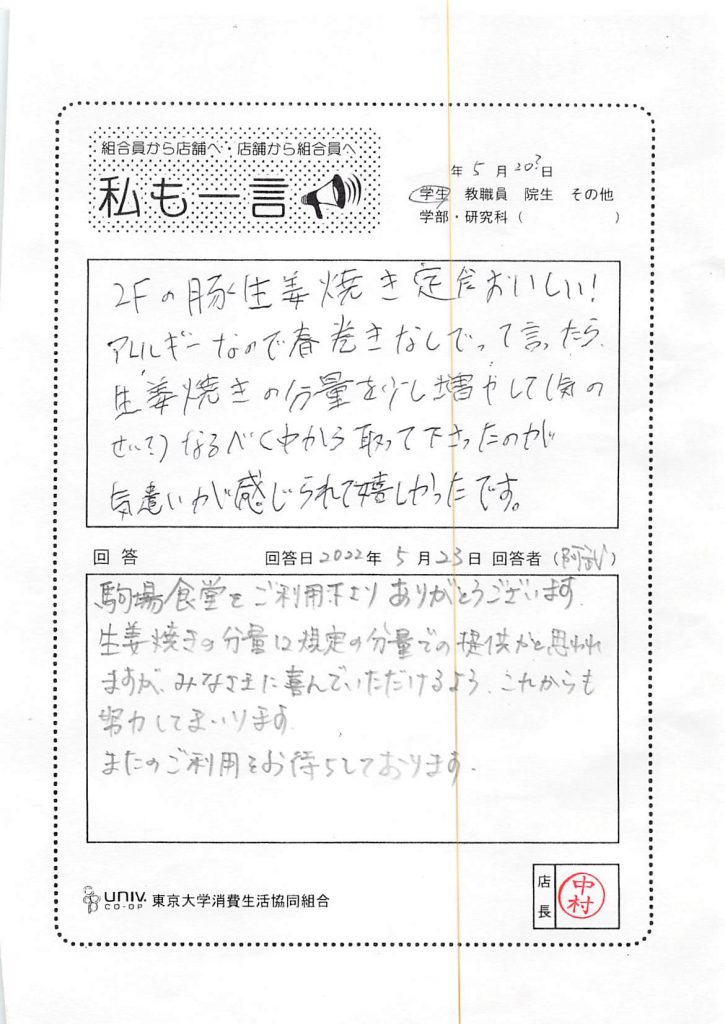 組合員から店舗へ・店舗から組合員へ
私も一言
年 5 月 20?日
学生 教職員 院生 その他
学部・研究科 ( )
2Fの豚生姜焼き定食おいしい!
アレルギーなので春巻きなしでって言ったら、
生姜焼きの分量を少し増やして(気の
せい?)なるべく中から取って下さったのが
気遣いが感じられて嬉しかったです。
回答 回答日2022年 5月23日 回答者 (阿武)
駒場食堂をご利用下さりありがとうございます
生姜焼きの分量は規定の分量での提供かと思われ
ますが、みなさまに喜んでいただけるよう、これからも
努力してまいります
またのご利用をお待ちしております.
UNIV. CO-OP 東京大学消費生活協同組合
店長 中村